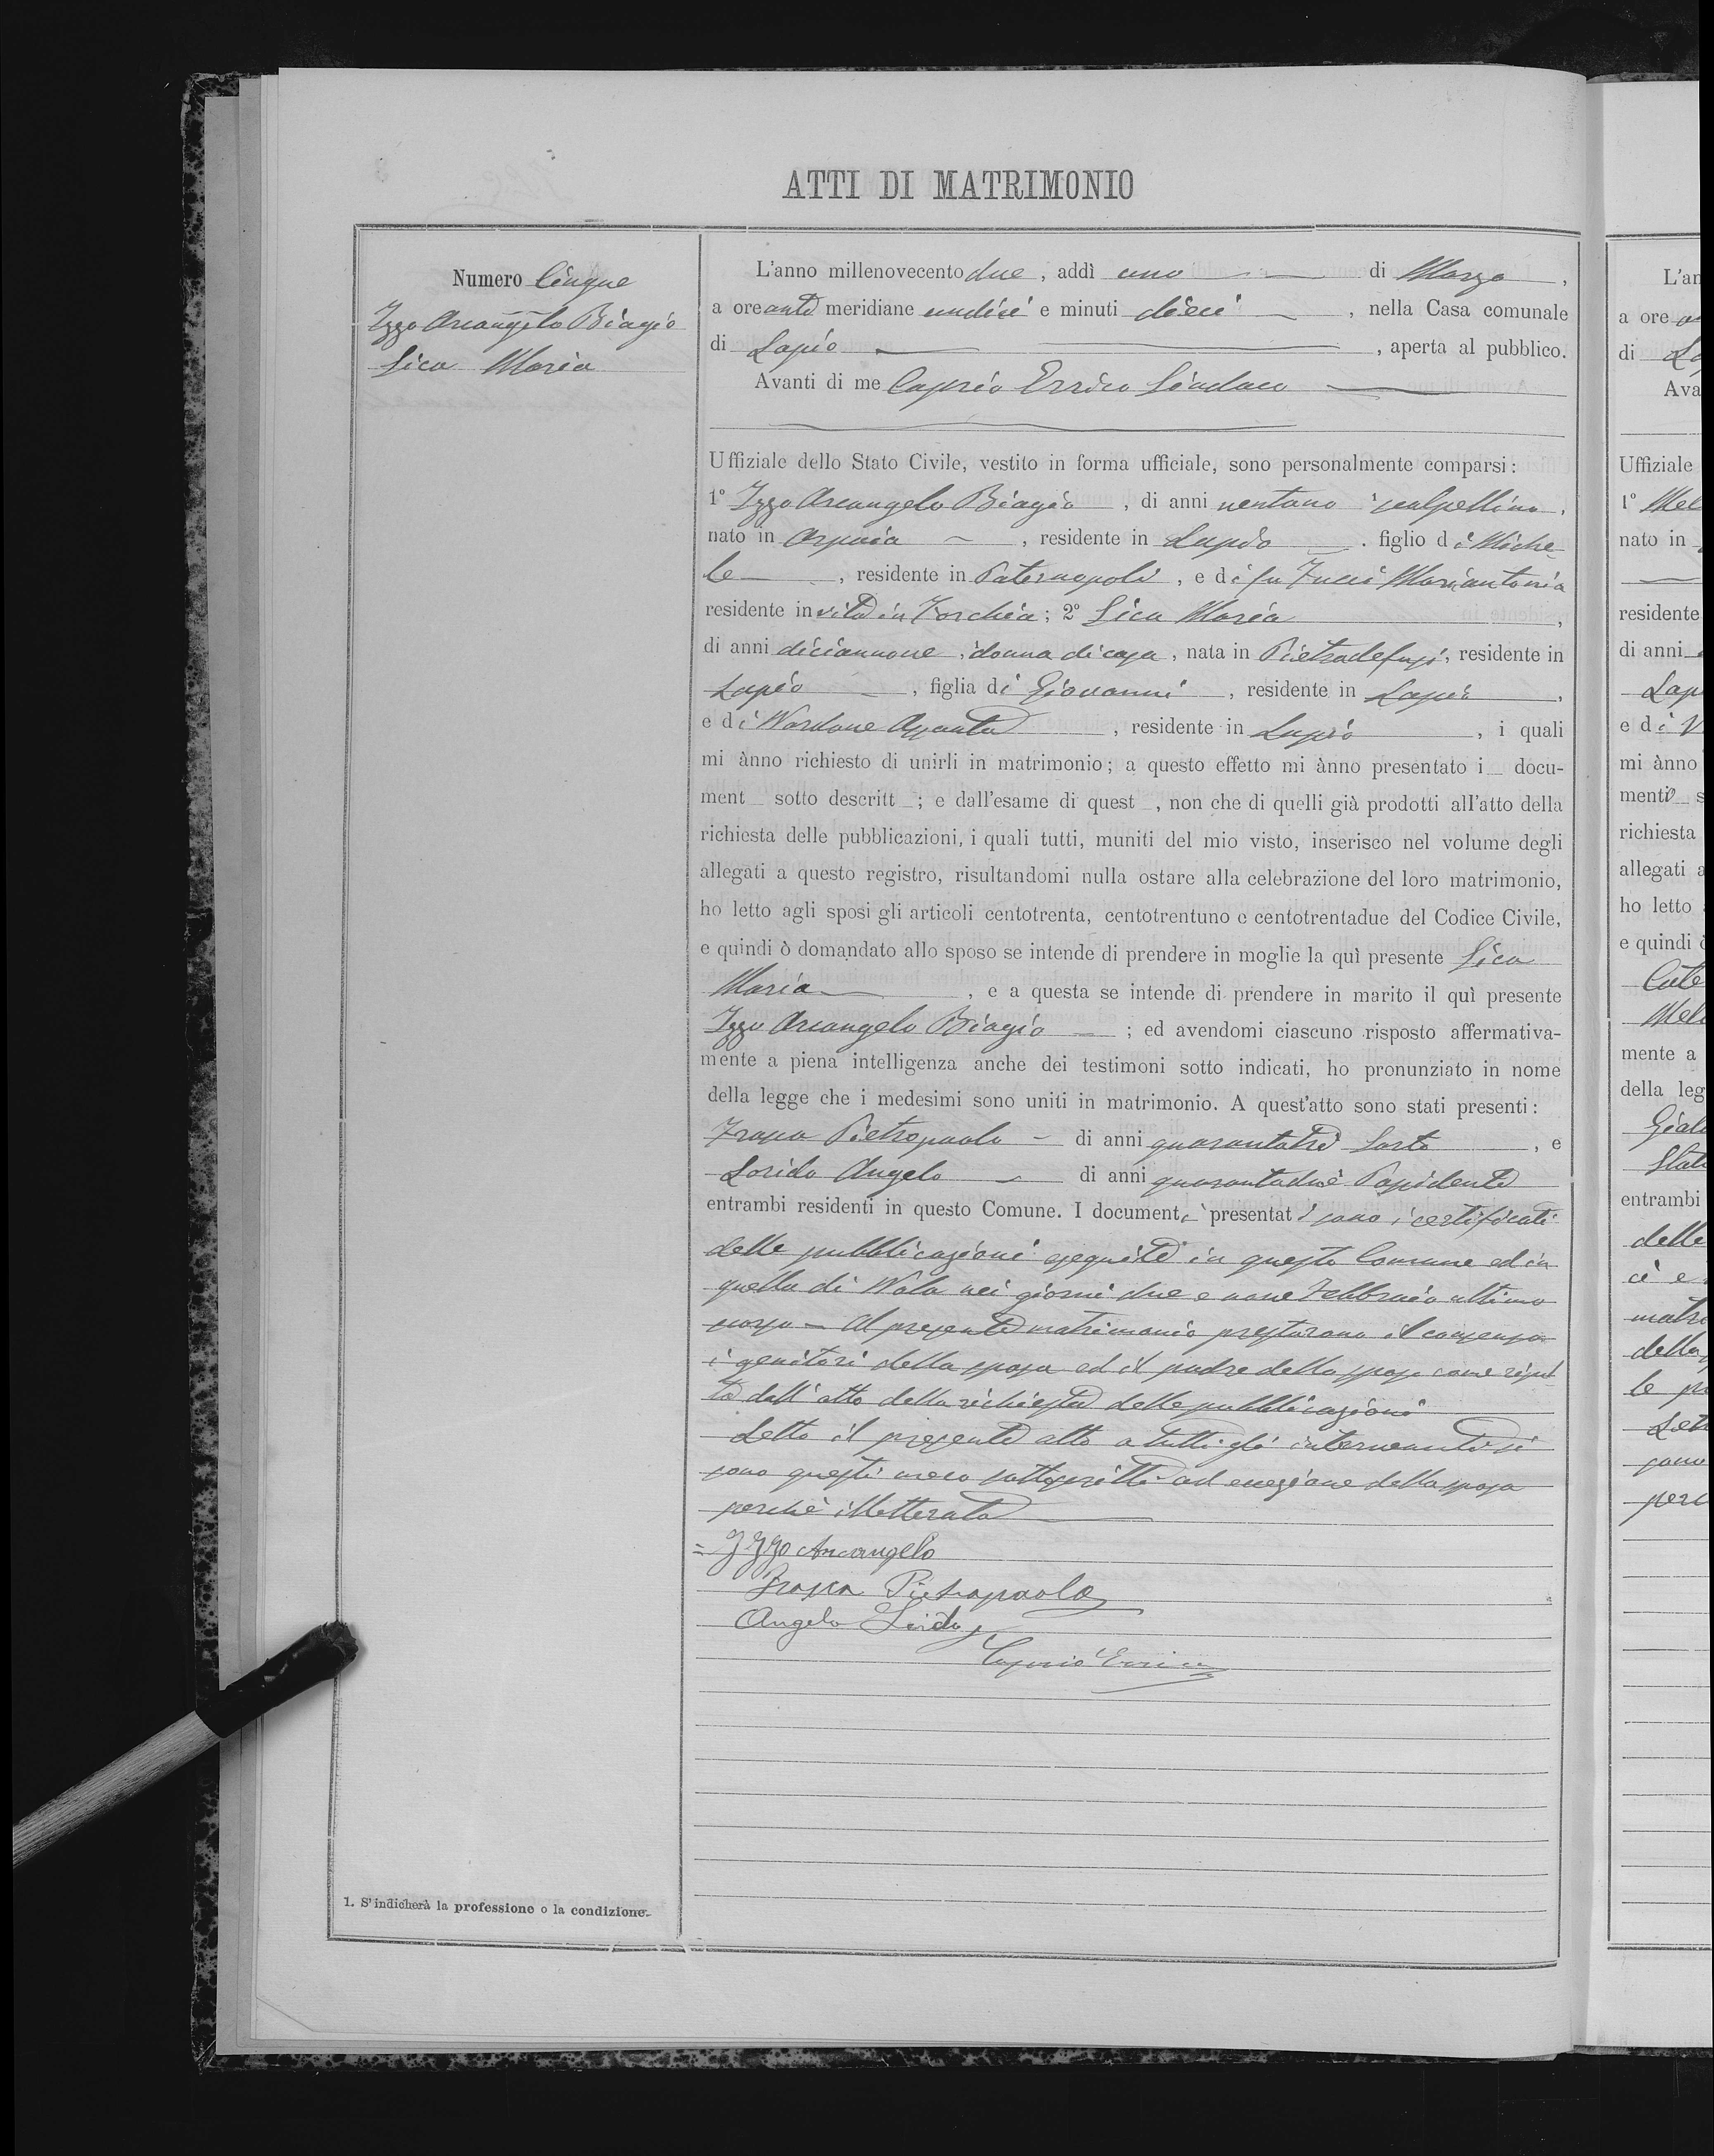 ATTI DI MATRIMONIO
Numero Cinque
Izzo Arcangelo Biagio
Sica Maria
L'anno millenovecento due, addì uno di Marzo,
a ore anti meridiane undici e minuti dieci, nella Casa comunale
di Lapio, aperta al pubblico.
Avanti di me Caprio Errico Sindaco
Uffiziale dello Stato Civile, vestito in forma ufficiale, sono personalmente comparsi:
1° Izzo Arcangelo Biagio, di anni ventuno scalpellino,
nato in Arpaia, residente in Lapio, figlio di Miche-
le, residente in Paternopoli, e di fu Fucci Mariantonia
residente in vita in Forchia; 2° Sica Maria,
di anni diciannove, donna di casa, nata in Pietradefusi, residente in
Lapio, figlia di Giovanni, residente in Lapio,
e di Nardone Agata, residente in Lapio, i quali
mi ànno richiesto di unirli in matrimonio; a questo effetto mi ànno presentato i docu-
ment sotto descritt; e dall'esame di quest, non che di quelli già prodotti all'atto della
richiesta delle pubblicazioni, i quali tutti, muniti del mio visto, inserisco nel volume degli
allegati a questo registro, risultandomi nulla ostare alla celebrazione del loro matrimonio,
ho letto agli sposi gli articoli centotrenta, centotrentuno e centotrentadue del Codice Civile,
e quindi ò domandato allo sposo se intende di prendere in moglie la quì presente Sica
Maria, e a questa se intende di prendere in marito il quì presente
Izzo Arcangelo Biagio; ed avendomi ciascuno risposto affermativa-
mente a piena intelligenza anche dei testimoni sotto indicati, ho pronunziato in nome
della legge che i medesimi sono uniti in matrimonio. A quest'atto sono stati presenti:
Pietropaolo di anni quarantatre Sarto, e
Angelo di anni quarantadue Possidente
entrambi residenti in questo Comune. I documenti presentati sono i certificati
delle pubblicazioni eseguite in questo Comune ed in
quello di Nola nei giorni due e nove Febbraio ultimo
scorso - Al presente matrimonio prestarono il consenso
i genitori della sposa ed il padre dello sposo come risul-
ta dall'atto della richiesta delle pubblicazioni
Letto il presente atto a tutti gli intervenuti si
sono questi meco sottoscritti ad eccezione della sposa
perchè illetterata
= Izzo Arcangelo
Pietropaolo
Angelo
Caprio Errico
1. S'indicherà la professione o la condizione.
L'an
a ore
di
Ava
Uffiziale
1° Mel
nato in
residente
di anni
Lap
e di
mi ànno
menti s
richiesta
allegati a
ho letto
e quindi
Mel
mente a
della leg
entrambi
delle
matri
della
le
Lett
sono